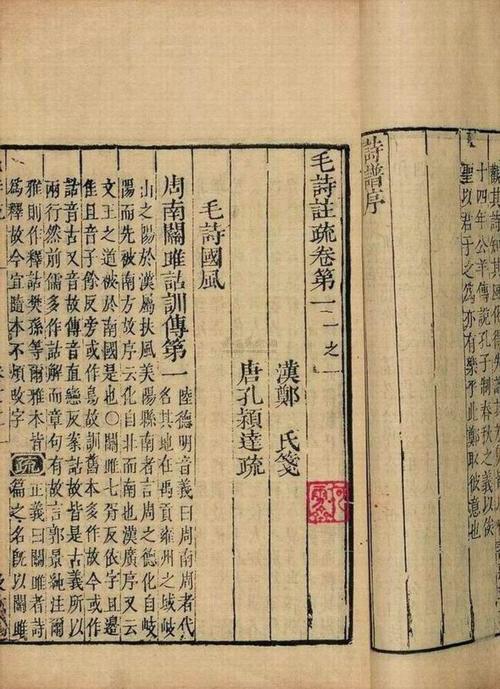 十四年公羊傳說孔子制春秋之義以俟
聖以君子之爲亦有樂乎此鄭取彼意也
詩譜序
毛詩註疏卷第一 一之一
漢鄭 氏箋
唐孔頴達疏
毛詩國風
周南關雎詁訓傳第一
陸德明音義曰周南周者代
名其地在禹貢雍州之域岐
山之陽於漢屬扶風美陽縣南者言周之德化自岐
陽而先被南方故序云化自北而南也漢廣序又云
文王之道被於南國是也〇關雎七胥反依字且邊
隹且音子餘反旁或作鳥故訓舊本多作故今或作
詁音古又音故傳音直戀反案詁故皆是古義所以
兩行然前儒多作詁解而章句有故言郭景純注爾
雅則作釋詁樊孫等爾雅本皆
爲釋故今宜隨本不煩改字
疏
正義曰關雎者詩
篇之名旣以關雎